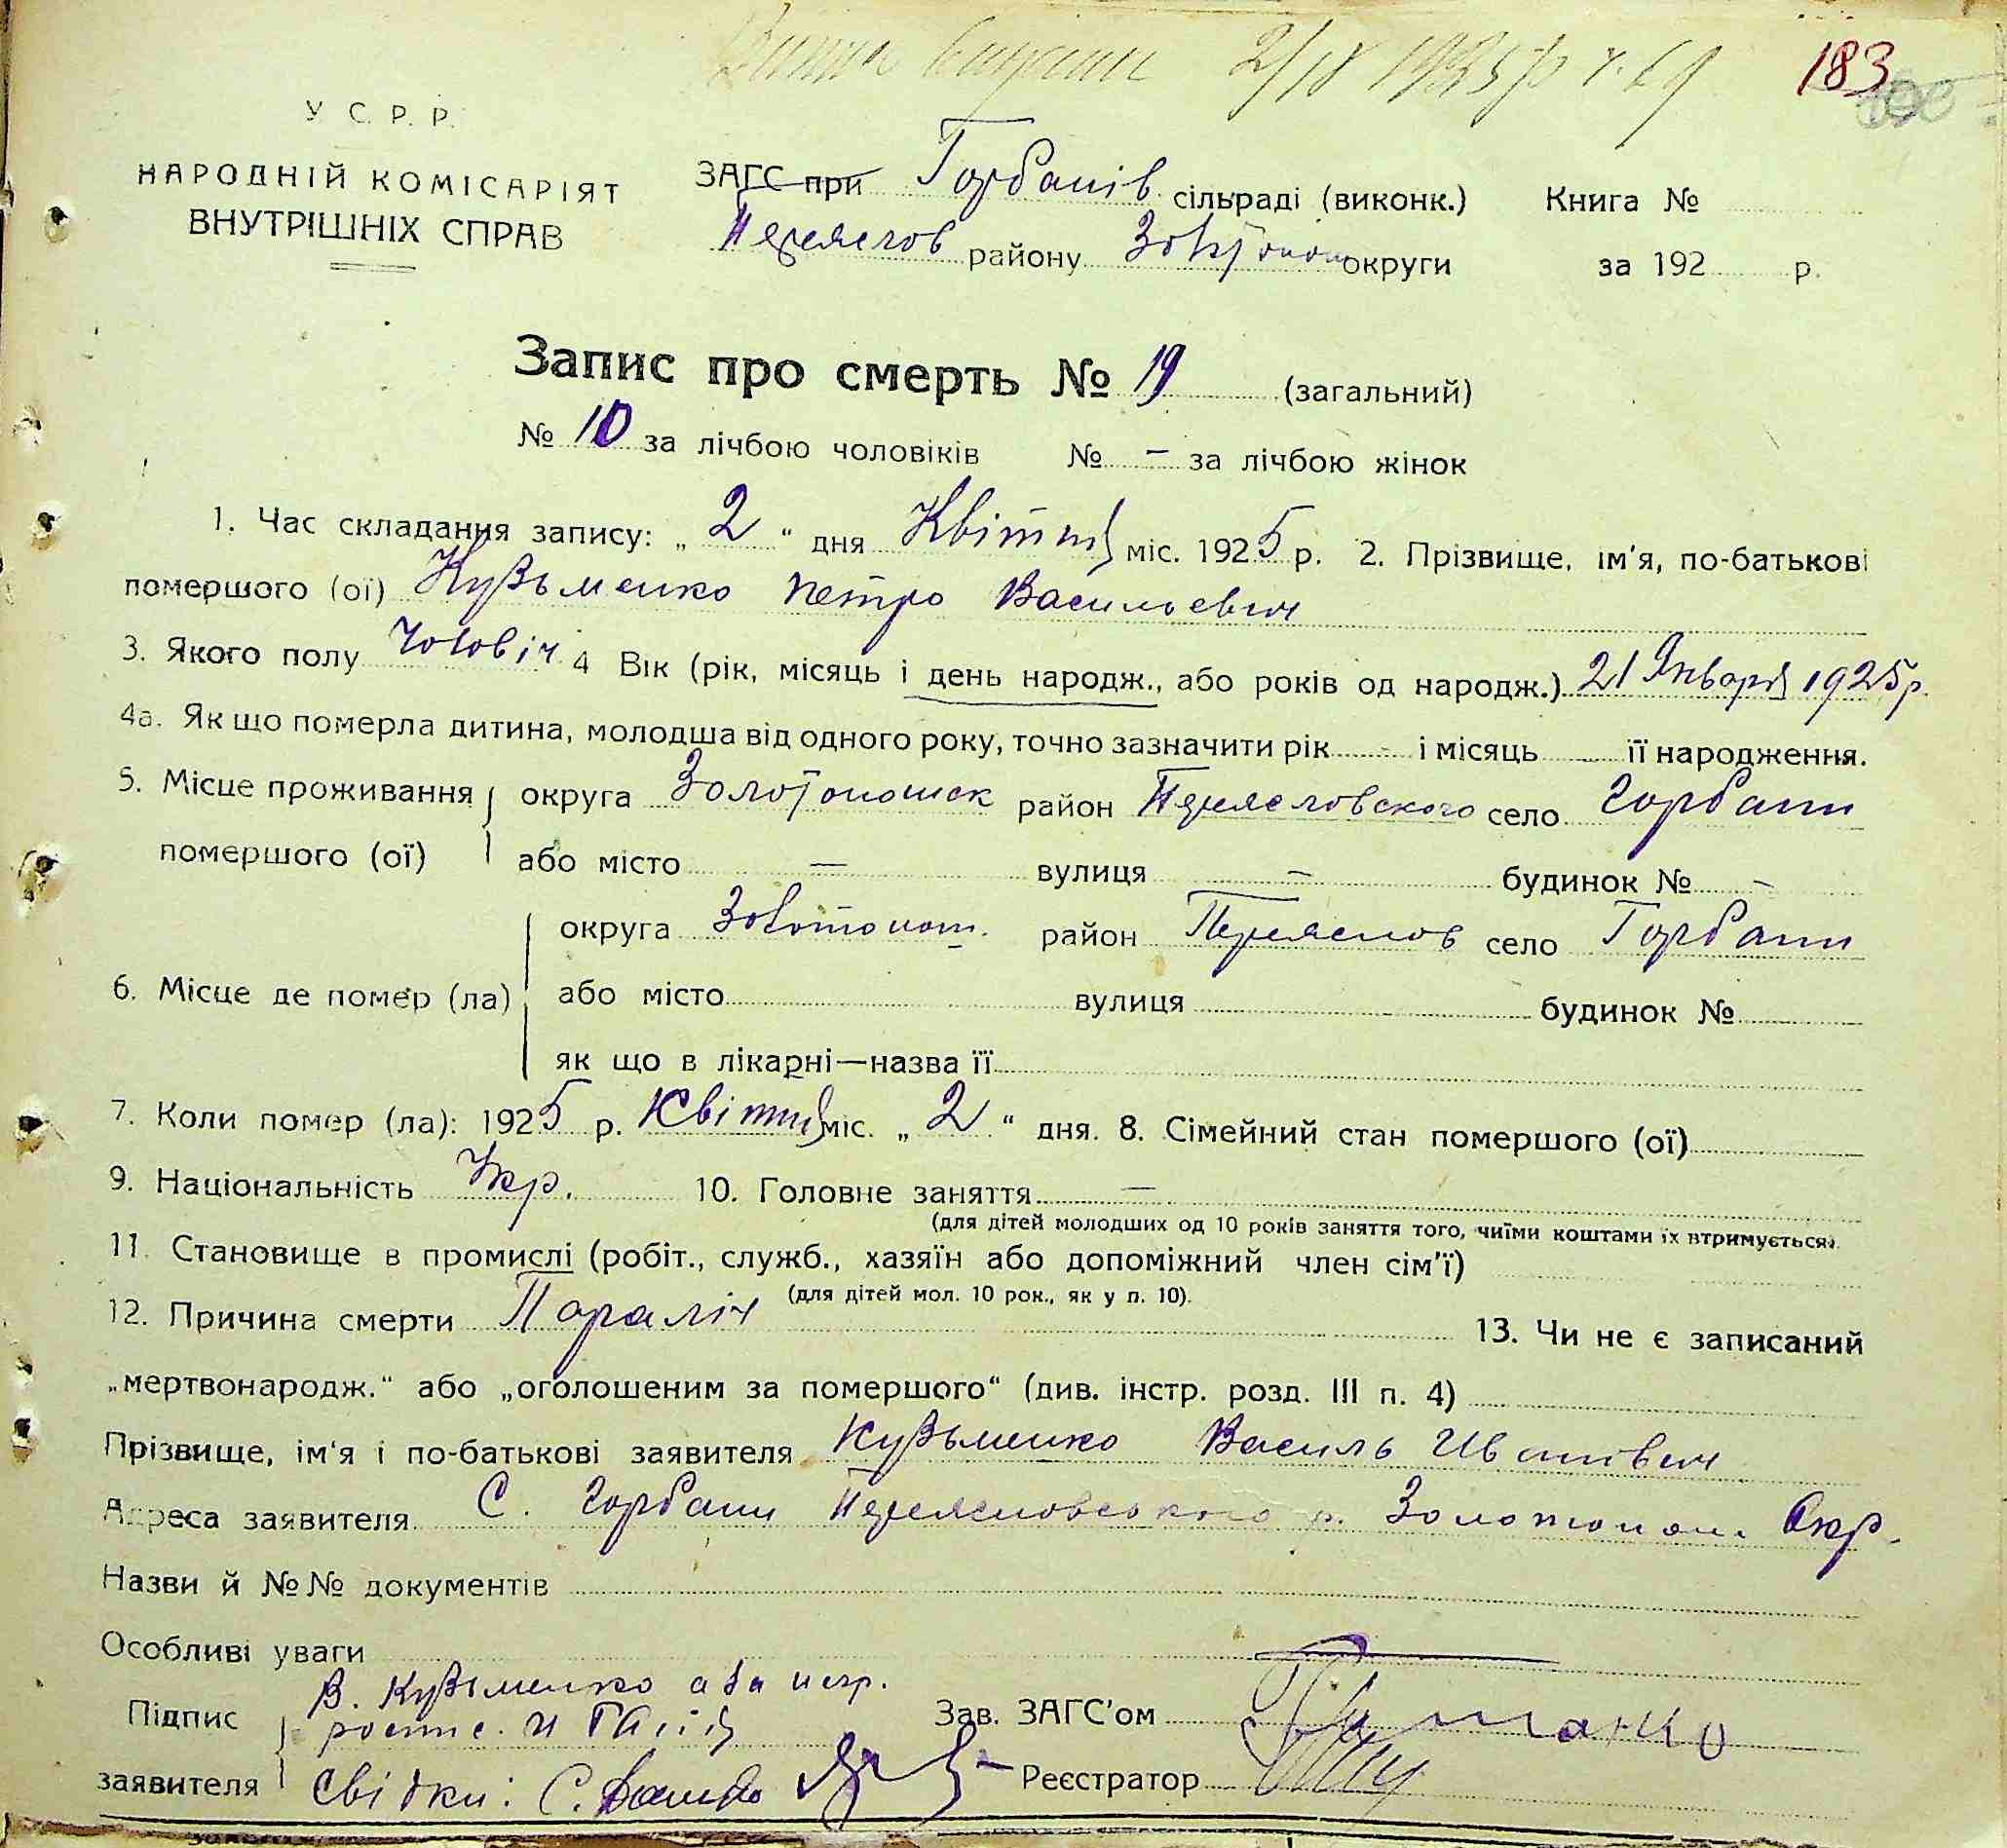 2/IX 1925 р ч. 69 183
У С. Р. Р.
НАРОДНІЙ КОМІСАРІЯТ
ВНУТРІШНІХ СПРАВ
ЗАГС при Горбанів сільраді (виконк.) Книга №
Переяслов району округи за 192 р.
Запис про смерть № 19 (загальний)
№ 10 за лічбою чоловіків № – за лічбою жінок
1. Час складання запису: „ 2 “ дня Квітня міс. 1925 р. 2. Прізвище, ім'я, по-батькові
помершого (ої) Кузьменко Петро Васильевич
3. Якого полу Чоловіч 4 Вік (рік, місяць і день народж., або років од народж.) 21 Января 1925 р.
4а. Як що померла дитина, молодша від одного року, точно зазначити рік - і місяць її народження.
5. Місце проживання округа Золотоношск район Переясловского село Горбани
помершого (ої) або місто – вулиця – будинок № -
округа Золотонош. район Переяслов село Горбани
6. Місце де помер (ла) або місто вулиця будинок №
як що в лікарні—назва її
7. Коли помер (ла): 1925 р. Квітня міс. „ 2 “ дня. 8. Сімейний стан помершого (ої)
9. Національність Укр. 10. Головне заняття –
(для дітей молодших од 10 років заняття того, чиїми коштами їх втримується).
11. Становище в промислі (робіт., служб., хазяїн або допоміжний член сім'ї)
(для дітей мол. 10 рок., як у п. 10).
12. Причина смерти Параліч 13. Чи не є записаний
„мертвонародж.“ або „оголошеним за помершого“ (див. інстр. розд. III п. 4)
Прізвище, ім'я і по-батькові заявителя Кузьменко Василь Иванович
Адреса заявителя С. Горбани Переясловського р. Золотонош. Окр.
Назви й №№ документів
Особливі уваги
Підпис В. Кузьменко а за негр.
Зав. ЗАГС'ом
заявителя Свідки: С. Реєстратор